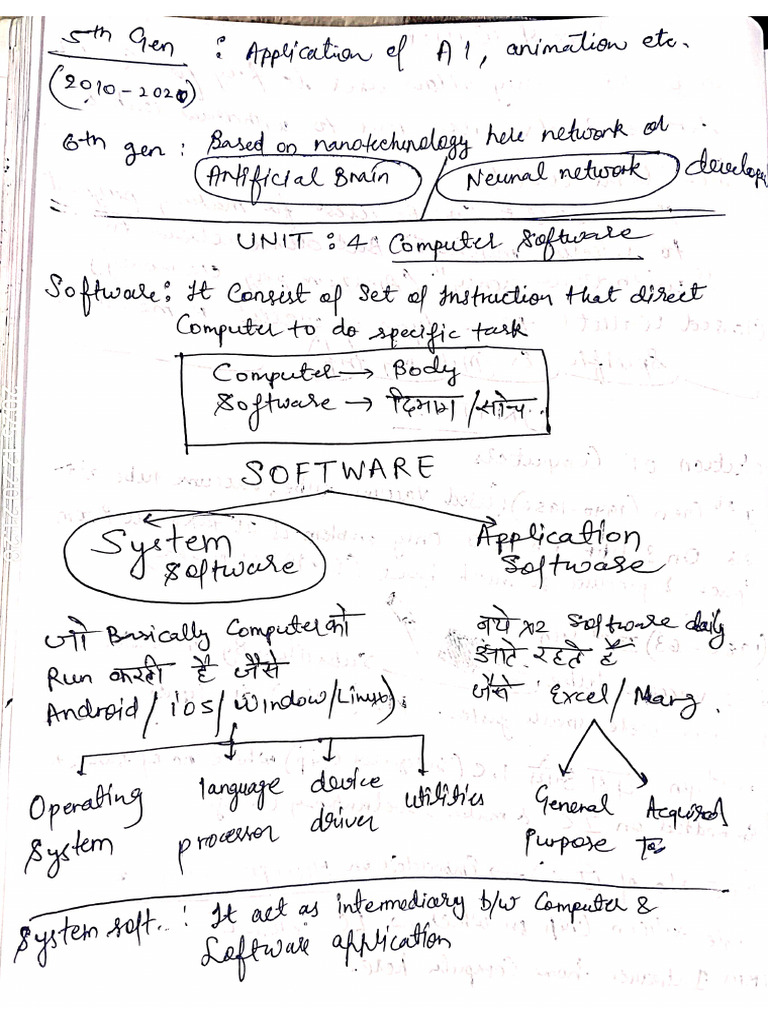 5th Gen : Application of AI, animation etc.
(2010-2020)
6th gen : Based on nanotechnology here network of
Artificial Brain / Neunal network develop
UNIT : 4 : Computer Software
Software : It Consist of Set of Instruction that direct
Computer to do specific task
Computer → Body
Software → दिमाग / सोच
SOFTWARE
System Software
Application Software
जो Basically Computer को
Run करती हैं जैसे
Android / ios / Window / Linux).
नये software daily
आते रहते हैं
जैसे Excel / Marg.
Operating System
language processor
device driver
utilities
General Purpose
Acquired
System soft. : It act as intermediary b/w Computer &
Software application